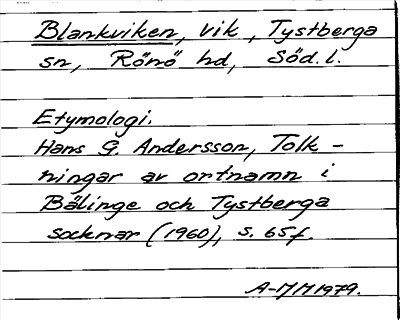 Blankviken, vik, Tystberga
sn, Rönö hd, Söd. l.
Etymologi.
Hans G. Andersson, Tolk-
ningar av ortnamn i
Bälinge och Tystberga
socknar (1960), s. 65f.
A-MM 1979.